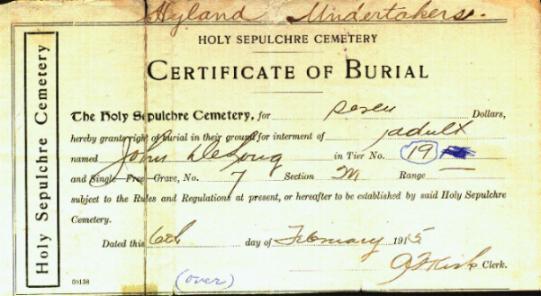 Hyland Undertakers.
HOLY SEPULCHRE CEMETERY
CERTIFICATE OF BURIAL
Holy Sepulchre Cemetery
The Holy Sepulchre Cemetery, for seven Dollars,
hereby grants right of burial in their ground for interment of adult
named John DeLong in Tier No. 19
and Single Free Grave, No. 7 Section M Range —
subject to the Rules and Regulations at present, or hereafter to be established by said Holy Sepulchre
Cemetery.
Dated this 6th day of February 1915
Clerk.
(over)